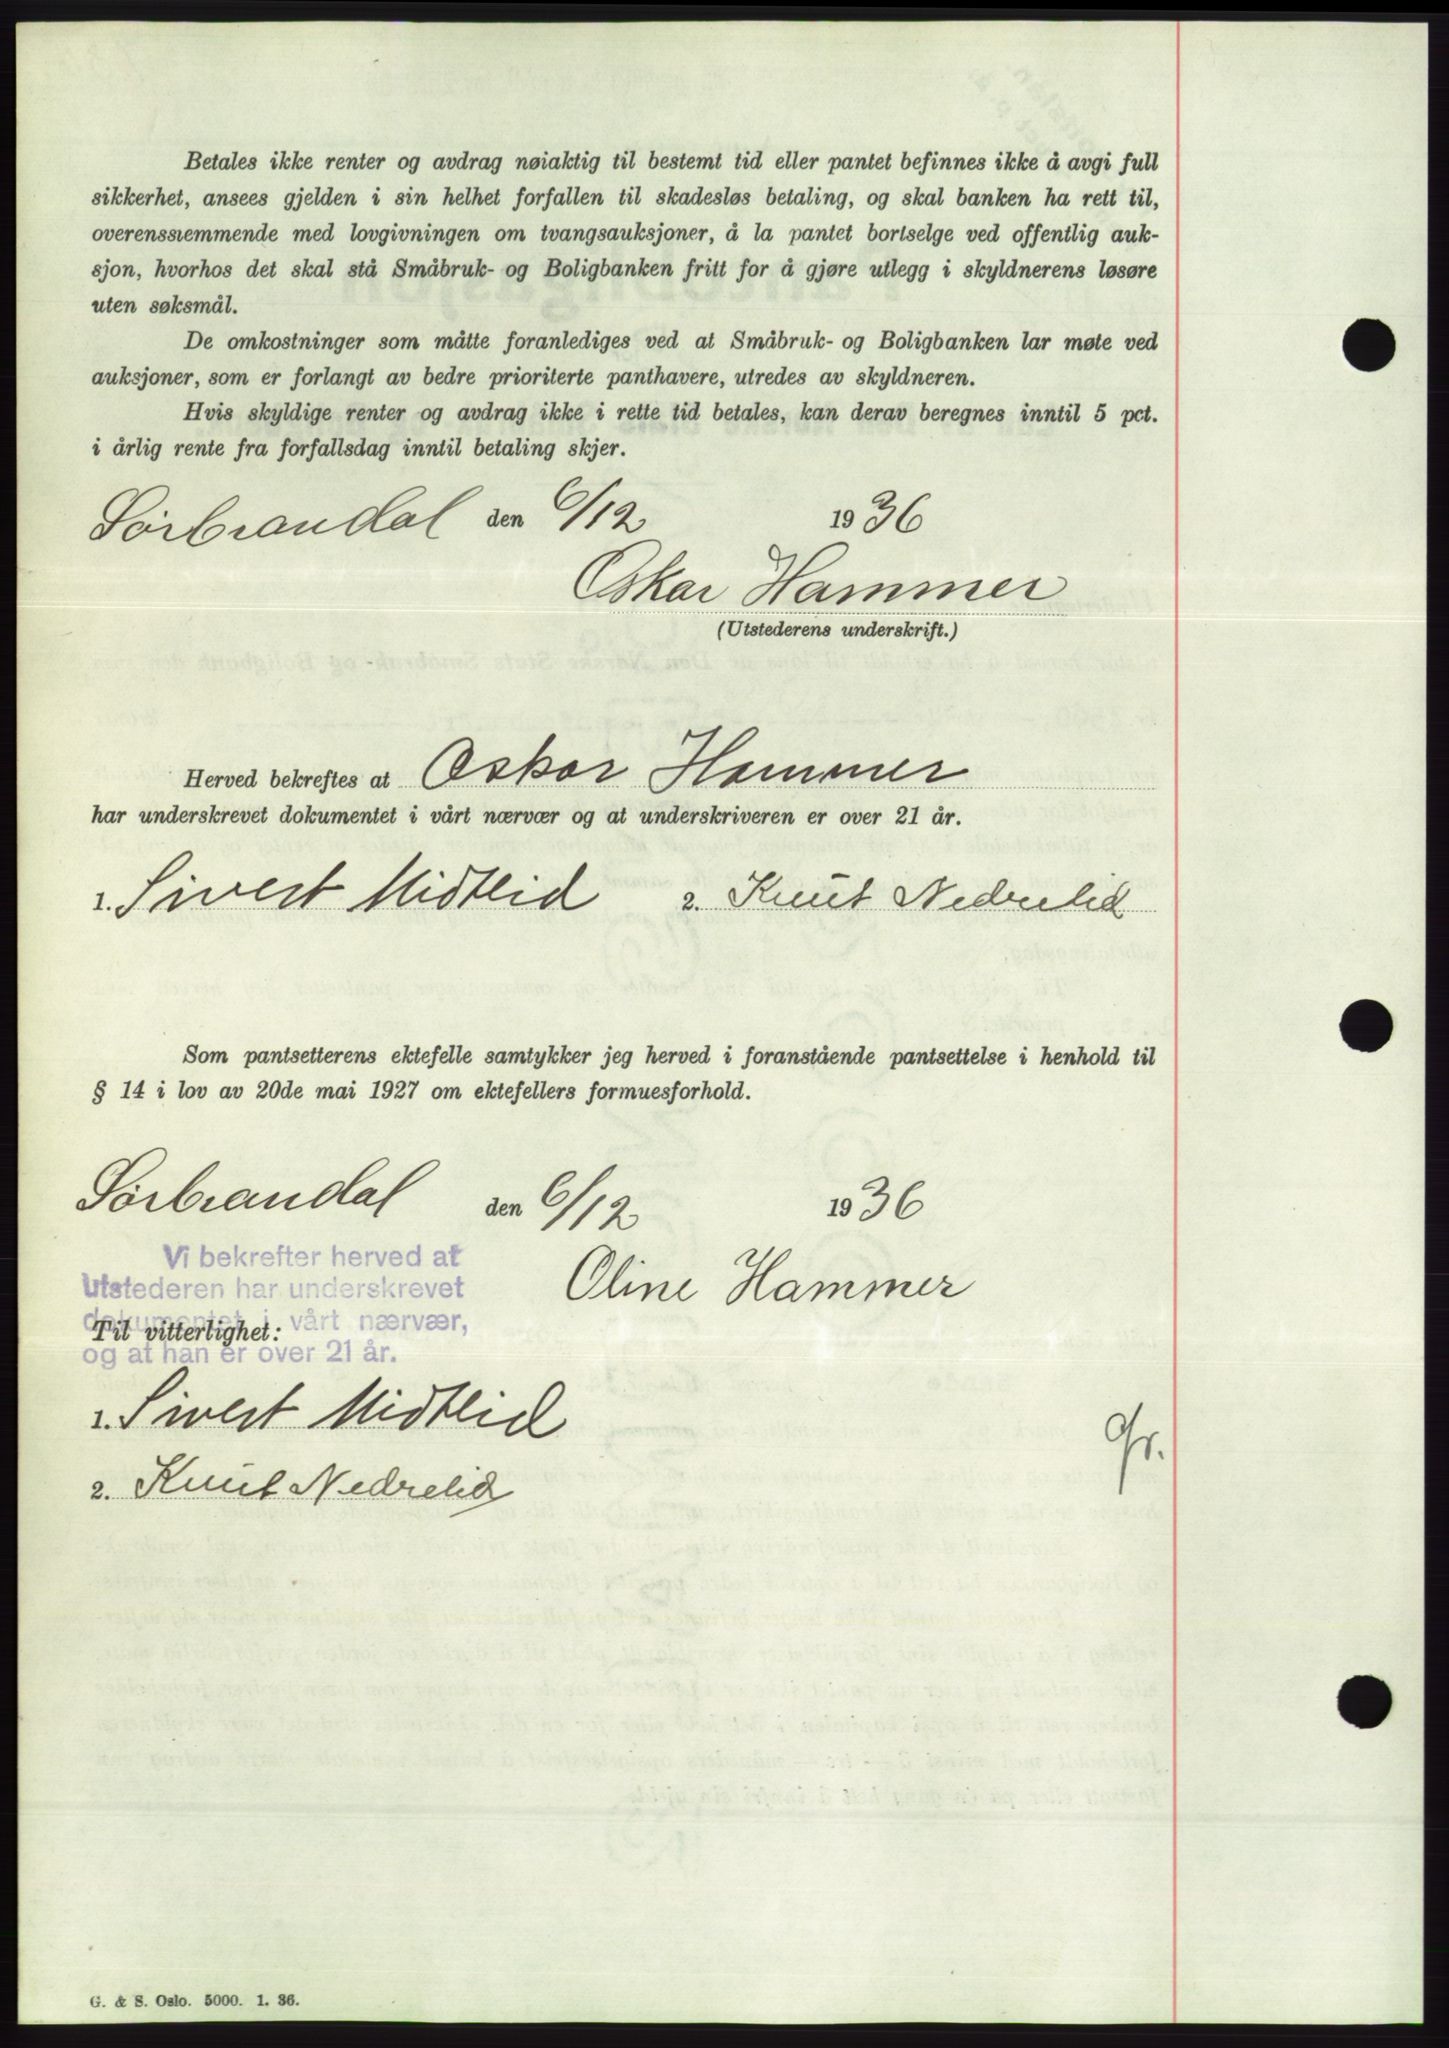 Betales ikke renter og avdrag nøiaktig til bestemt tid eller pantet befinnes ikke å avgi full
sikkerhet, ansees gjelden i sin helhet forfallen til skadesløs betaling, og skal banken ha rett til,
overensstemmende med lovgivningen om tvangsauksjoner, å la pantet bortselge ved offentlig auk-
sjon, hvorhos det skal stå Småbruk- og Boligbanken fritt for å gjøre utlegg i skyldnerens løsøre
uten søksmål.
De omkostninger som måtte foranlediges ved at Småbruk- og Boligbanken lar møte ved
auksjoner, som er forlangt av bedre prioriterte panthavere, utredes av skyldneren.
Hvis skyldige renter og avdrag ikke i rette tid betales, kan derav beregnes inntil 5 pct.
i årlig rente fra forfallsdag inntil betaling skjer.
Sørbrandal den 6/12 1936
Oskar Hammer
(Utstederens underskrift.)
Herved bekreftes at Oskar Hammer
har underskrevet dokumentet i vårt nærvær og at underskriveren er over 21 år.
1. Sivert Midtlid 2. Knut Nedrelid
Som pantsetterens ektefelle samtykker jeg herved i foranstående pantsettelse i henhold til
§ 14 i lov av 20de mai 1927 om ektefellers formuesforhold.
Sørbrandal den 6/12 1936
Vi bekrefter herved at
Utstederen har underskrevet
Oline Hammer
dokumentet i vårt nærvær,
Til vitterlighet:
og at han er over 21 år.
1. Sivert Midtlid
2. Knut Nedrelid
G. & S. Oslo. 5000. 1. 36.